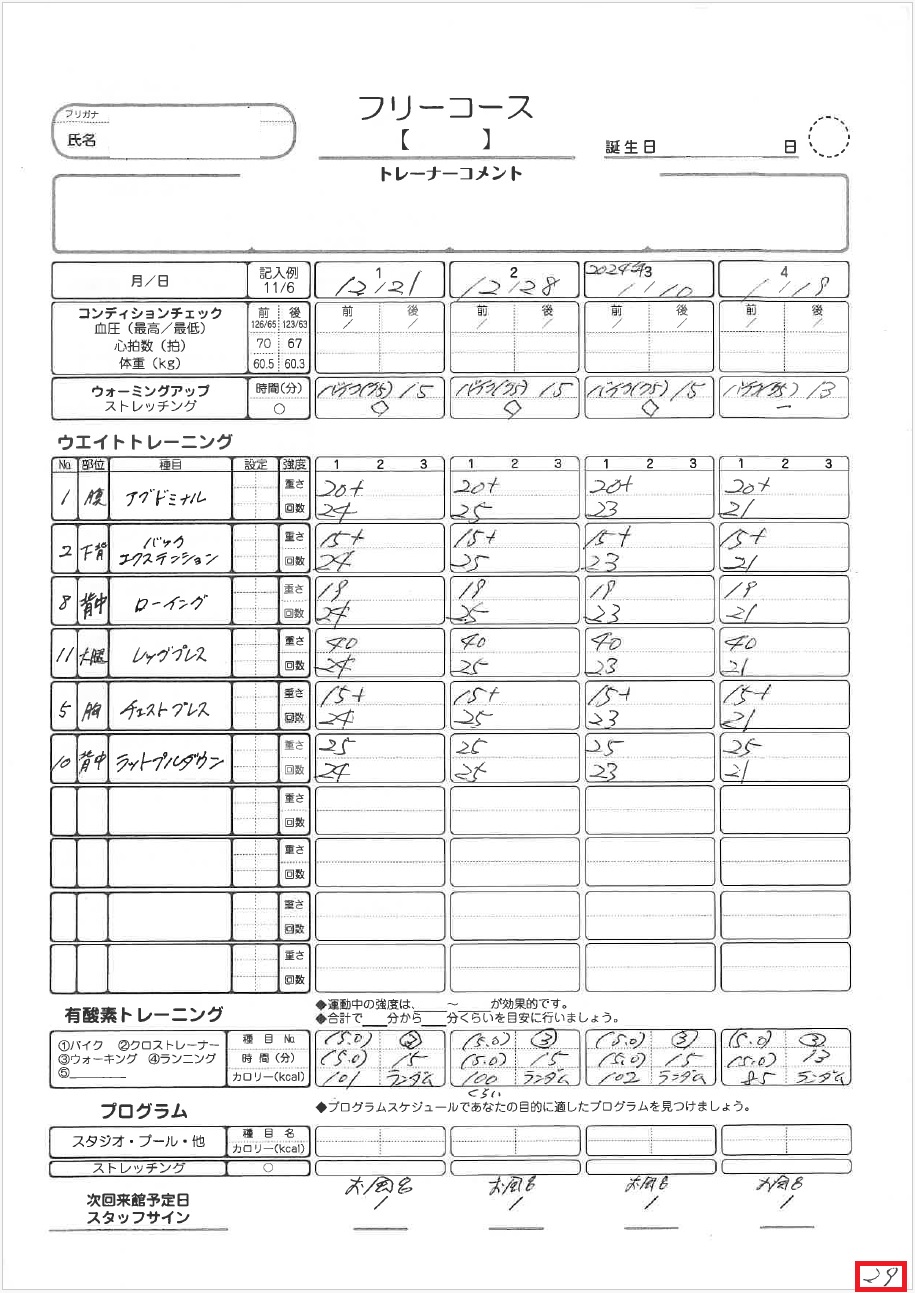 フリガナ
氏名
フリーコース
【 】
誕生日 日
トレーナーコメント
月／日 記入例 11/6 1 12/21 2 12/28 2024年 3 1/10 4 1/19
コンディションチェック 前 後 前 後 前 後 前 後 前 後
血圧（最高／最低） 126/65 123/63 / / / / / / / /
心拍数（拍） 70 67
体重（kg） 60.5 60.3
ウォーミングアップ 時間(分) バイク(75) 15 バイク(75) 15 バイク(75) 15 バイク(75) 13
ストレッチング ○ ◇ ◇ ◇ ー
ウエイトトレーニング
No. 部位 種目 設定 強度 1 2 3 1 2 3 1 2 3 1 2 3
1 腹 アブドミナル 重さ 20+ 20+ 20+ 20+
回数 24 25 23 21
2 下背 バックエクステンション 重さ 15+ 15+ 15+ 15+
回数 24 25 23 21
8 背中 ローイング 重さ 19 19 19 19
回数 24 25 23 21
11 大腿 レッグプレス 重さ 40 40 40 40
回数 24 25 23 21
5 胸 チェストプレス 重さ 15+ 15+ 15+ 15+
回数 24 25 23 21
10 背中 ラットプルダウン 重さ 25 25 25 25
回数 24 25 23 21
重さ
回数
重さ
回数
重さ
回数
重さ
回数
有酸素トレーニング
◆運動中の強度は、 ～ が効果的です。
◆合計で 分から 分くらいを目安に行いましょう。
①バイク ②クロストレーナー 種目 No. (5.0) (5.0) ③ (5.0) ③ (5.0) ③
③ウォーキング ④ランニング 時間(分) (5.0) 15 (5.0) 15 (5.0) 15 (5.0) 13
⑤ カロリー(kcal) 101 ランダム 100 ランダム 102 ランダム 85 ランダム
くらい
プログラム
◆プログラムスケジュールであなたの目的に適したプログラムを見つけましょう。
スタジオ・プール・他 種目名
カロリー(kcal)
ストレッチング ○
お風呂 お風呂 お風呂 お風呂
次回来館予定日 / / / /
スタッフサイン
29